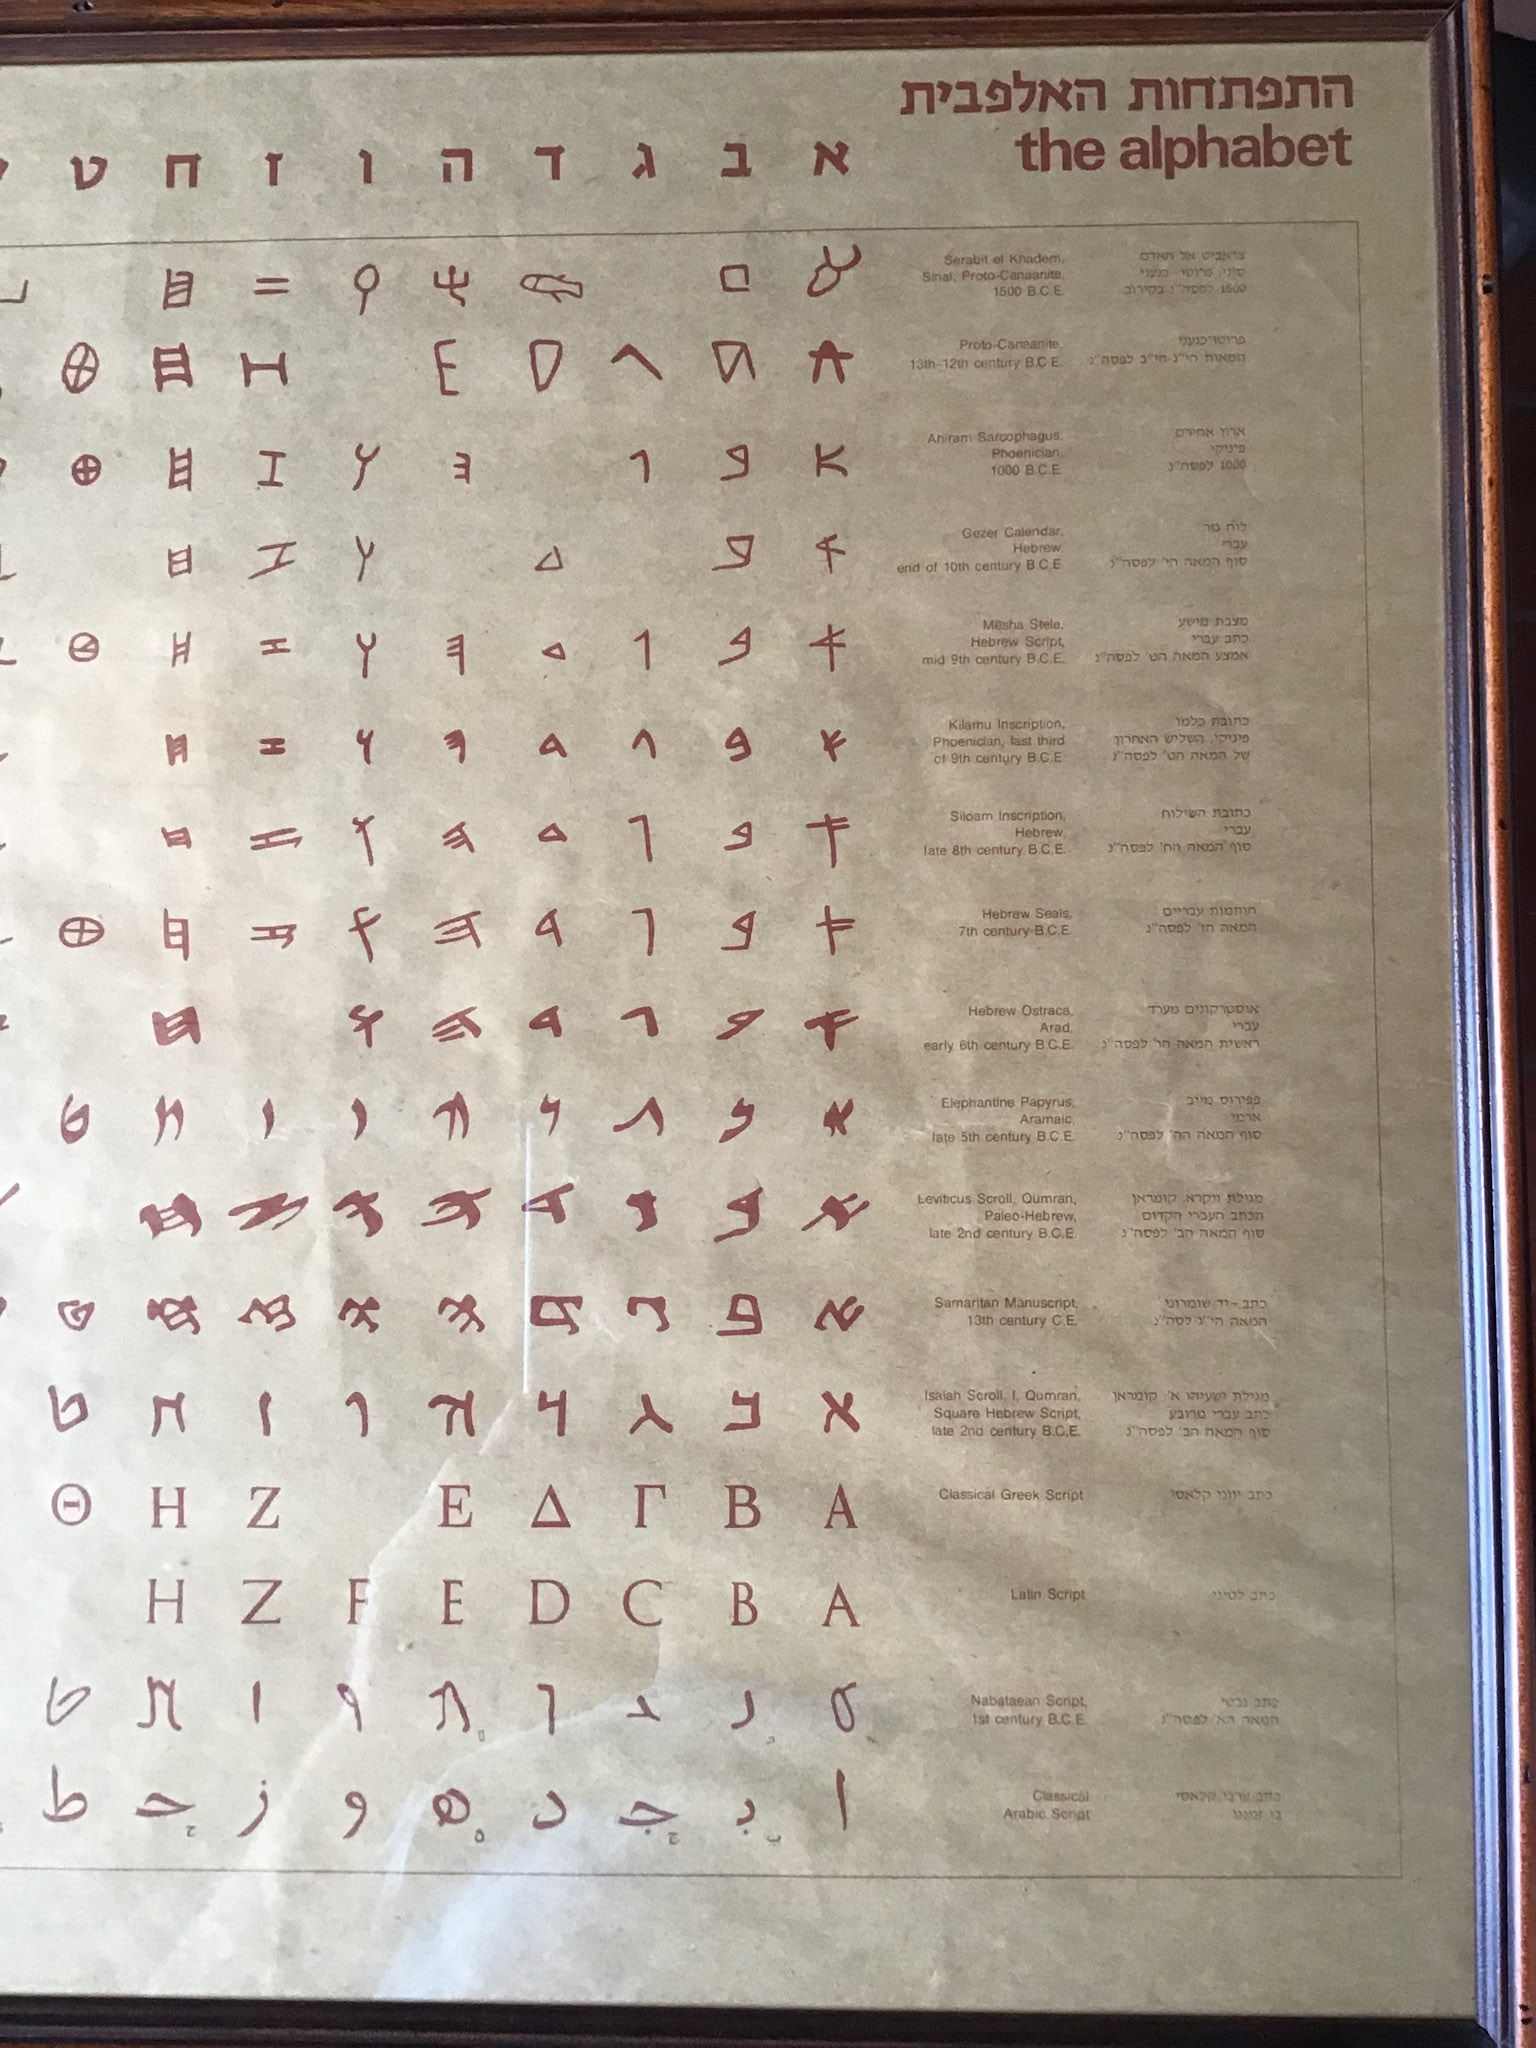 התפתחות האלפבית
the alphabet
א ב ג ד ה ו ז ח ט
Serabit el Khadem,
Sinai, Proto-Canaanite,
1500 B.C.E.
צראביט אל חאדם
סיני, פרוטו-כנעני
1500 לפסה״נ בקירוב
Proto-Canaanite,
13th-12th century B.C.E.
פרוטו־כנעני
המאות הי״ג־הי״ב לפסה״נ
Ahiram Sarcophagus,
Phoenician,
1000 B.C.E.
ארון אחירם
פיניקי
1000 לפסה״נ
Gezer Calendar,
Hebrew,
end of 10th century B.C.E
לוח גזר
עברי
סוף המאה הי׳ לפסה״נ
Mesha Stele,
Hebrew Script,
mid 9th century B.C.E.
מצבת מישע
כתב עברי
אמצע המאה הט׳ לפסה״נ
Kilamu Inscription,
Phoenician, last third
of 9th century B.C.E
כתובת כלמו
פיניקי, השליש האחרון
של המאה הט׳ לפסה״נ
Siloam Inscription,
Hebrew,
late 8th century B.C.E.
כתובת השילוח
עברי
סוף המאה הח׳ לפסה״נ
Hebrew Seals,
7th century B.C.E.
חותמות עבריים
המאה הז׳ לפסה״נ
Hebrew Ostraca,
Arad,
early 6th century B.C.E.
אוסטרקונים מערד
עברי
ראשית המאה הו׳ לפסה״נ
Elephantine Papyrus,
Aramaic,
late 5th century B.C.E.
פפירוס מייב
ארמי
סוף המאה הה׳ לפסה״נ
Leviticus Scroll, Qumran,
Paleo-Hebrew,
late 2nd century B.C.E.
מגילת ויקרא, קומראן
הכתב העברי הקדום
סוף המאה הב׳ לפסה״נ
Samaritan Manuscript,
13th century C.E.
כתב-יד שומרוני
המאה הי״ג לסה״נ
Isaiah Scroll, I, Qumran,
Square Hebrew Script,
late 2nd century B.C.E.
מגילת ישעיהו א׳, קומראן
כתב עברי מרובע
סוף המאה הב׳ לפסה״נ
Θ H Z E Δ Γ B A
Classical Greek Script
כתב יווני קלאסי
H Z F E D C B A
Latin Script
כתב לטיני
Nabataean Script,
1st century B.C.E.
כתב נבטי
המאה הא׳ לפסה״נ
ا ب ج د ه و ز ح ط
Classical
Arabic Script
כתב ערבי קלאסי
בן זמננו